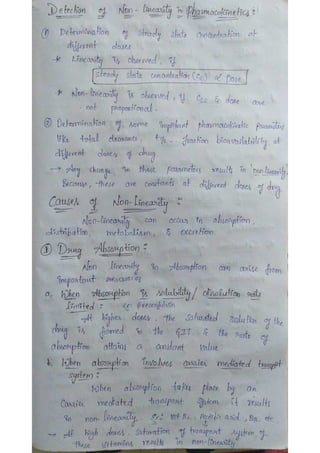 Detection of Non-linearity in Pharmacokinetics:
① Determination of steady state concentration at
different doses
* Linearity is observed, if
steady state concentration (Css) α Dose
* Non-linearity is observed, if Css & dose are
not proportional.
② Determination of some important pharmacokinetic parameters
like total clearance, t½, fraction bioavailability at
different doses of drug
→ Any change in these parameters results in non-linearity.
Because, these are constants at different doses of drug
Causes of Non-linearity :-
Non-linearity can occur in absorption,
distribution, metabolism, & excretion
① Drug Absorption :-
Non linearity in Absorption can arise from
important
a. When Absorption is solubility / dissolution rate
limited :-
At higher doses, the saturated solution of the
drug is formed in the GIT & the rate of
absorption attains a constant value
b. When absorption involves carrier mediated transport
system :-
When absorption takes place by an
Carrier mediated transport system it results
in non linearity. Ex:- acid, etc
→ At high doses, saturation of transport system of
these vitamins results in non-linearity